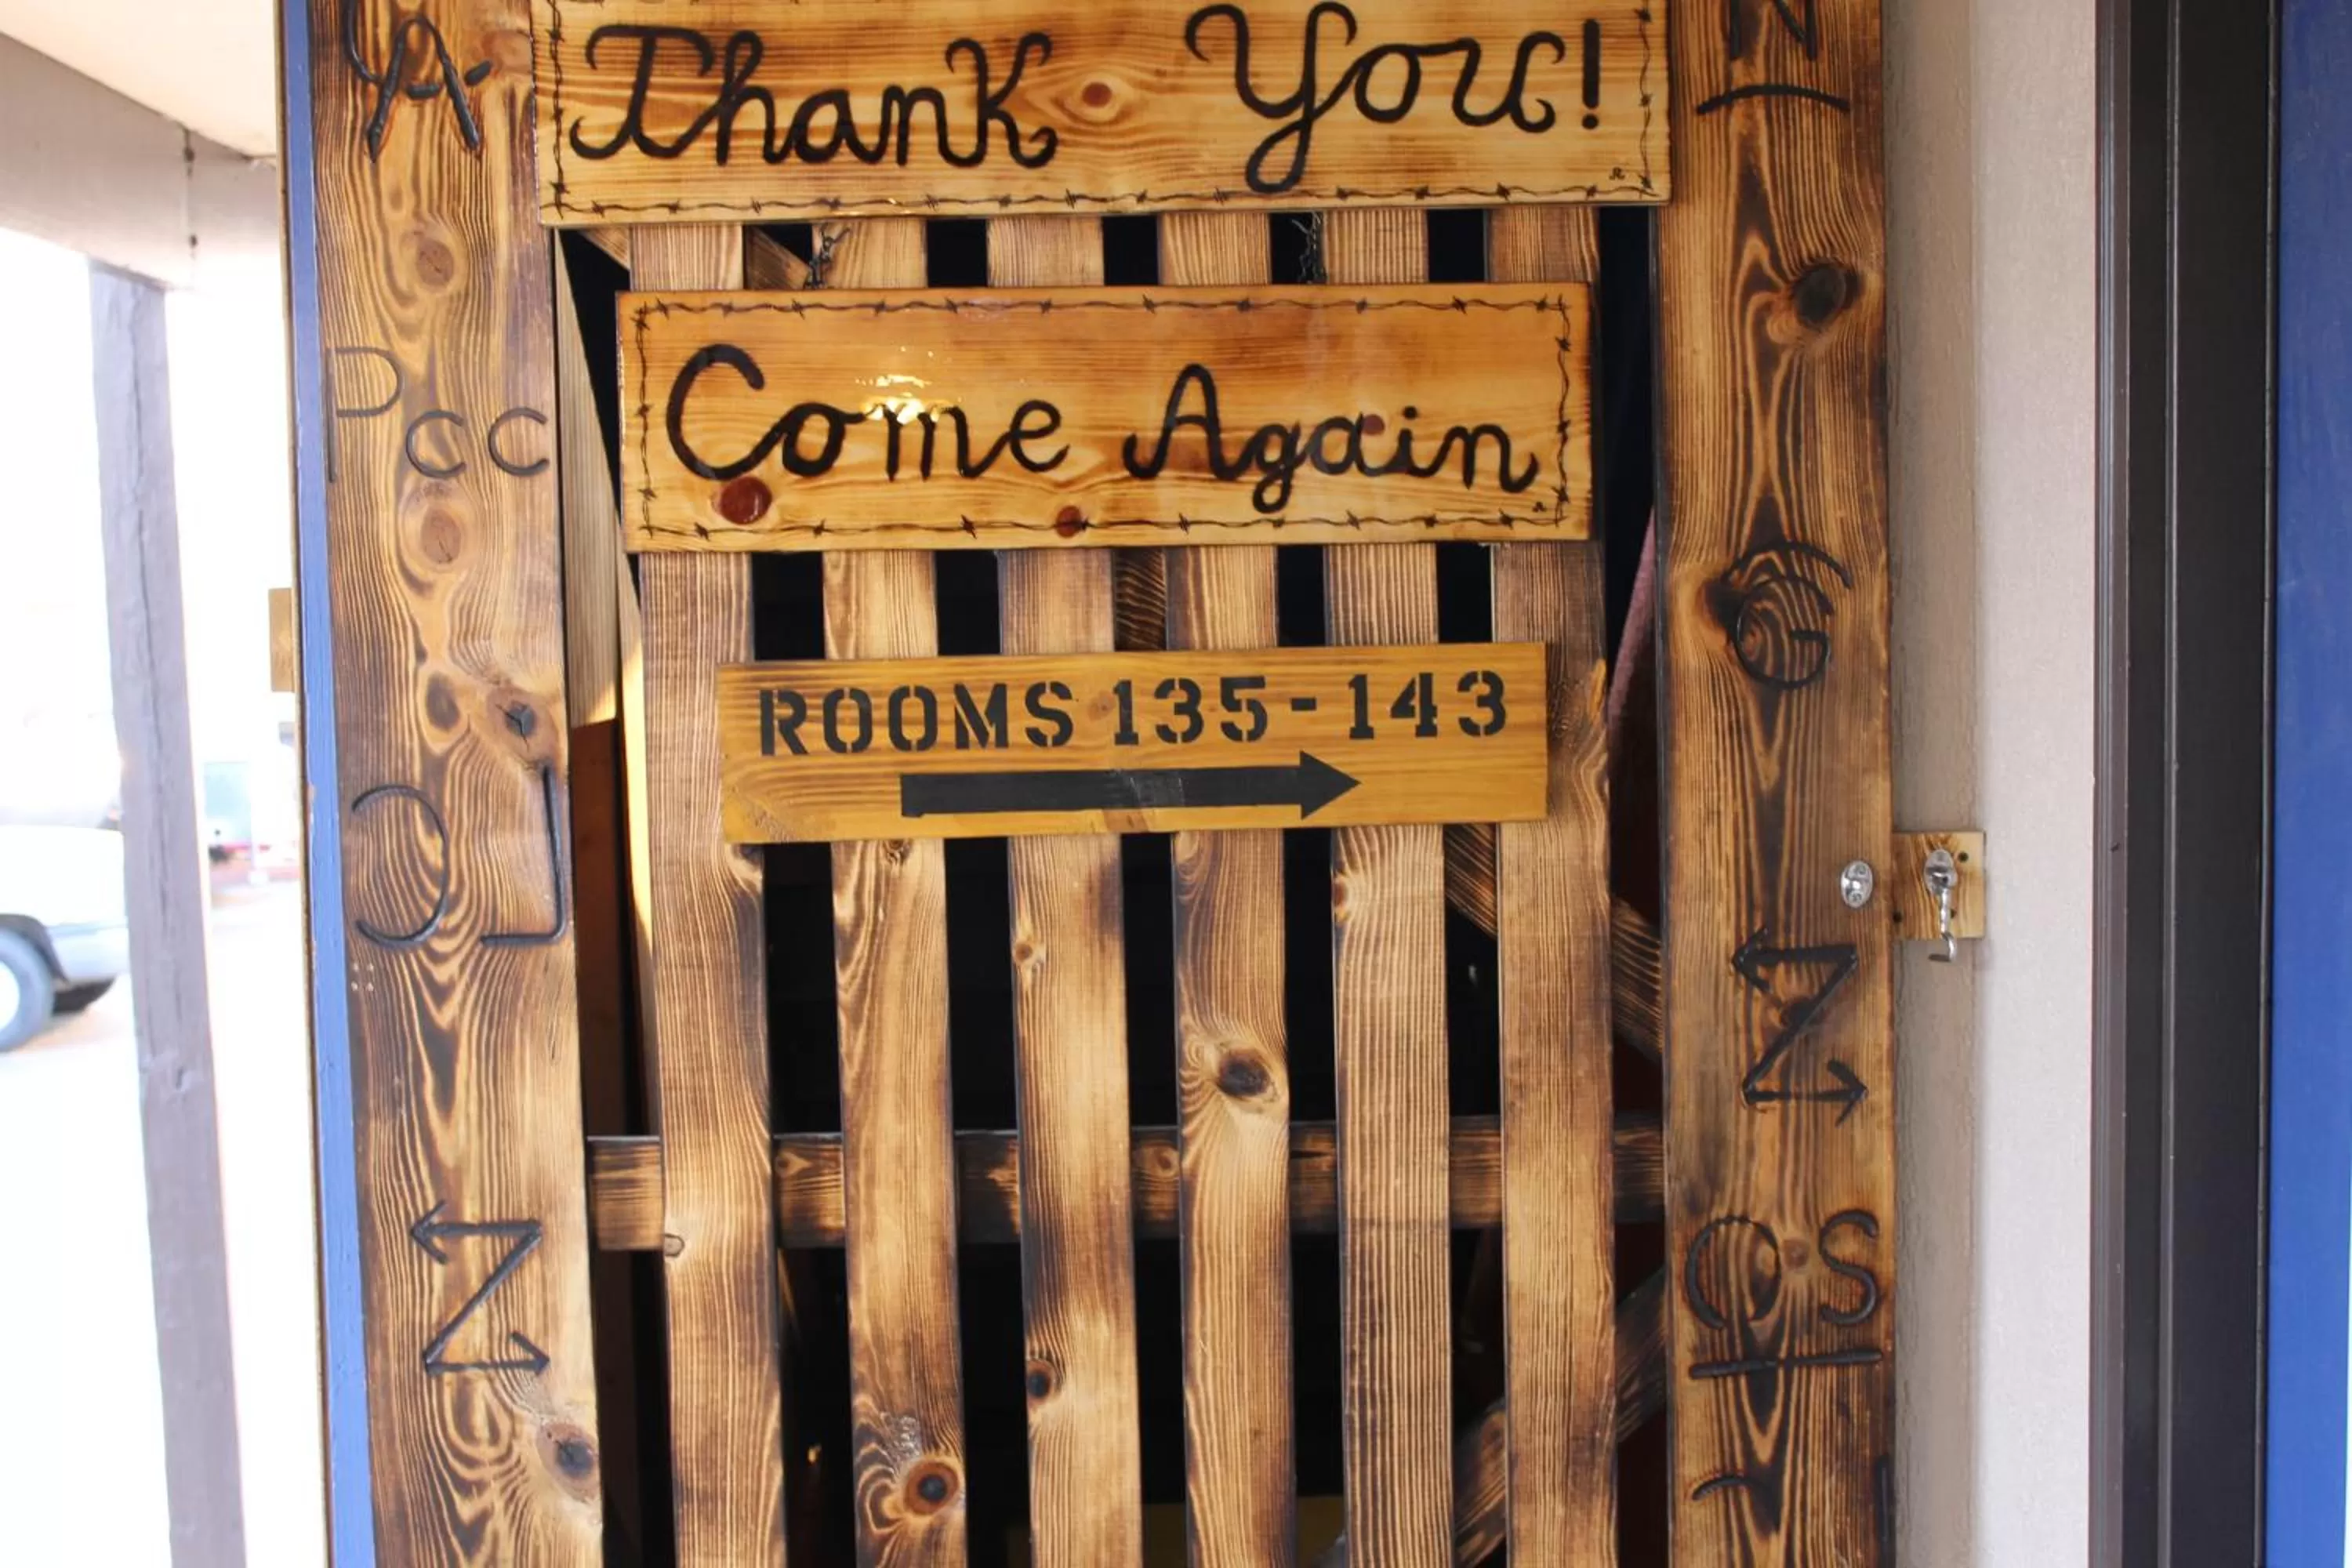 Thank You!
Come Again
ROOMS 135-143
Pcc
G
Z
Z
OS